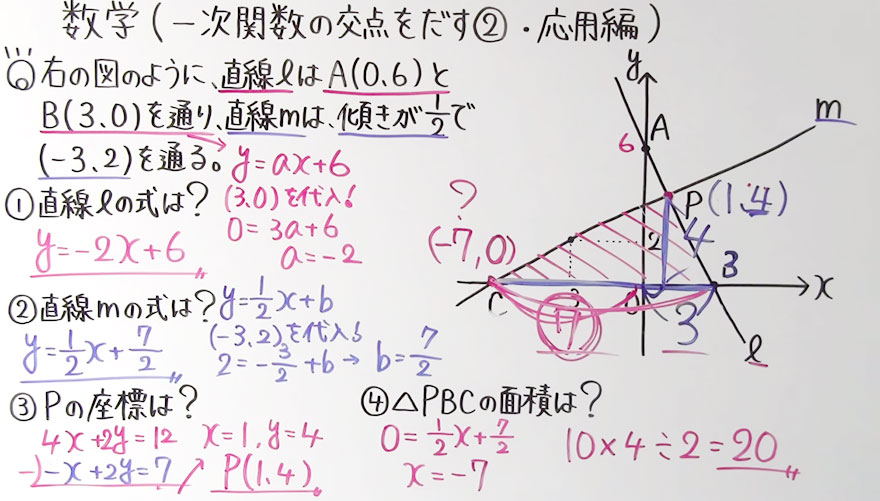 数学(一次関数の交点をだす②・応用編)
右の図のように、直線ℓはA(0、6)と
B(3、0)を通り、直線mは、傾きが1/2で
(-3、2)を通る。
y=ax+6
①直線ℓの式は?
(3、0)を代入!
0=3a+6
a=-2
y=-2x+6
②直線mの式は?
y=1/2x+b
(-3、2)を代入!
2=-3/2+b→b=7/2
y=1/2x+7/2
③Pの座標は?
4x+2y=12
-)-x+2y=7
x=1、y=4
P(1、4)
④△PBCの面積は?
0=1/2x+7/2
x=-7
10×4÷2=20
y
m
A
6
P(1、4)
?
(-7、0)
2
4
B
x
C
3
7
3
ℓ